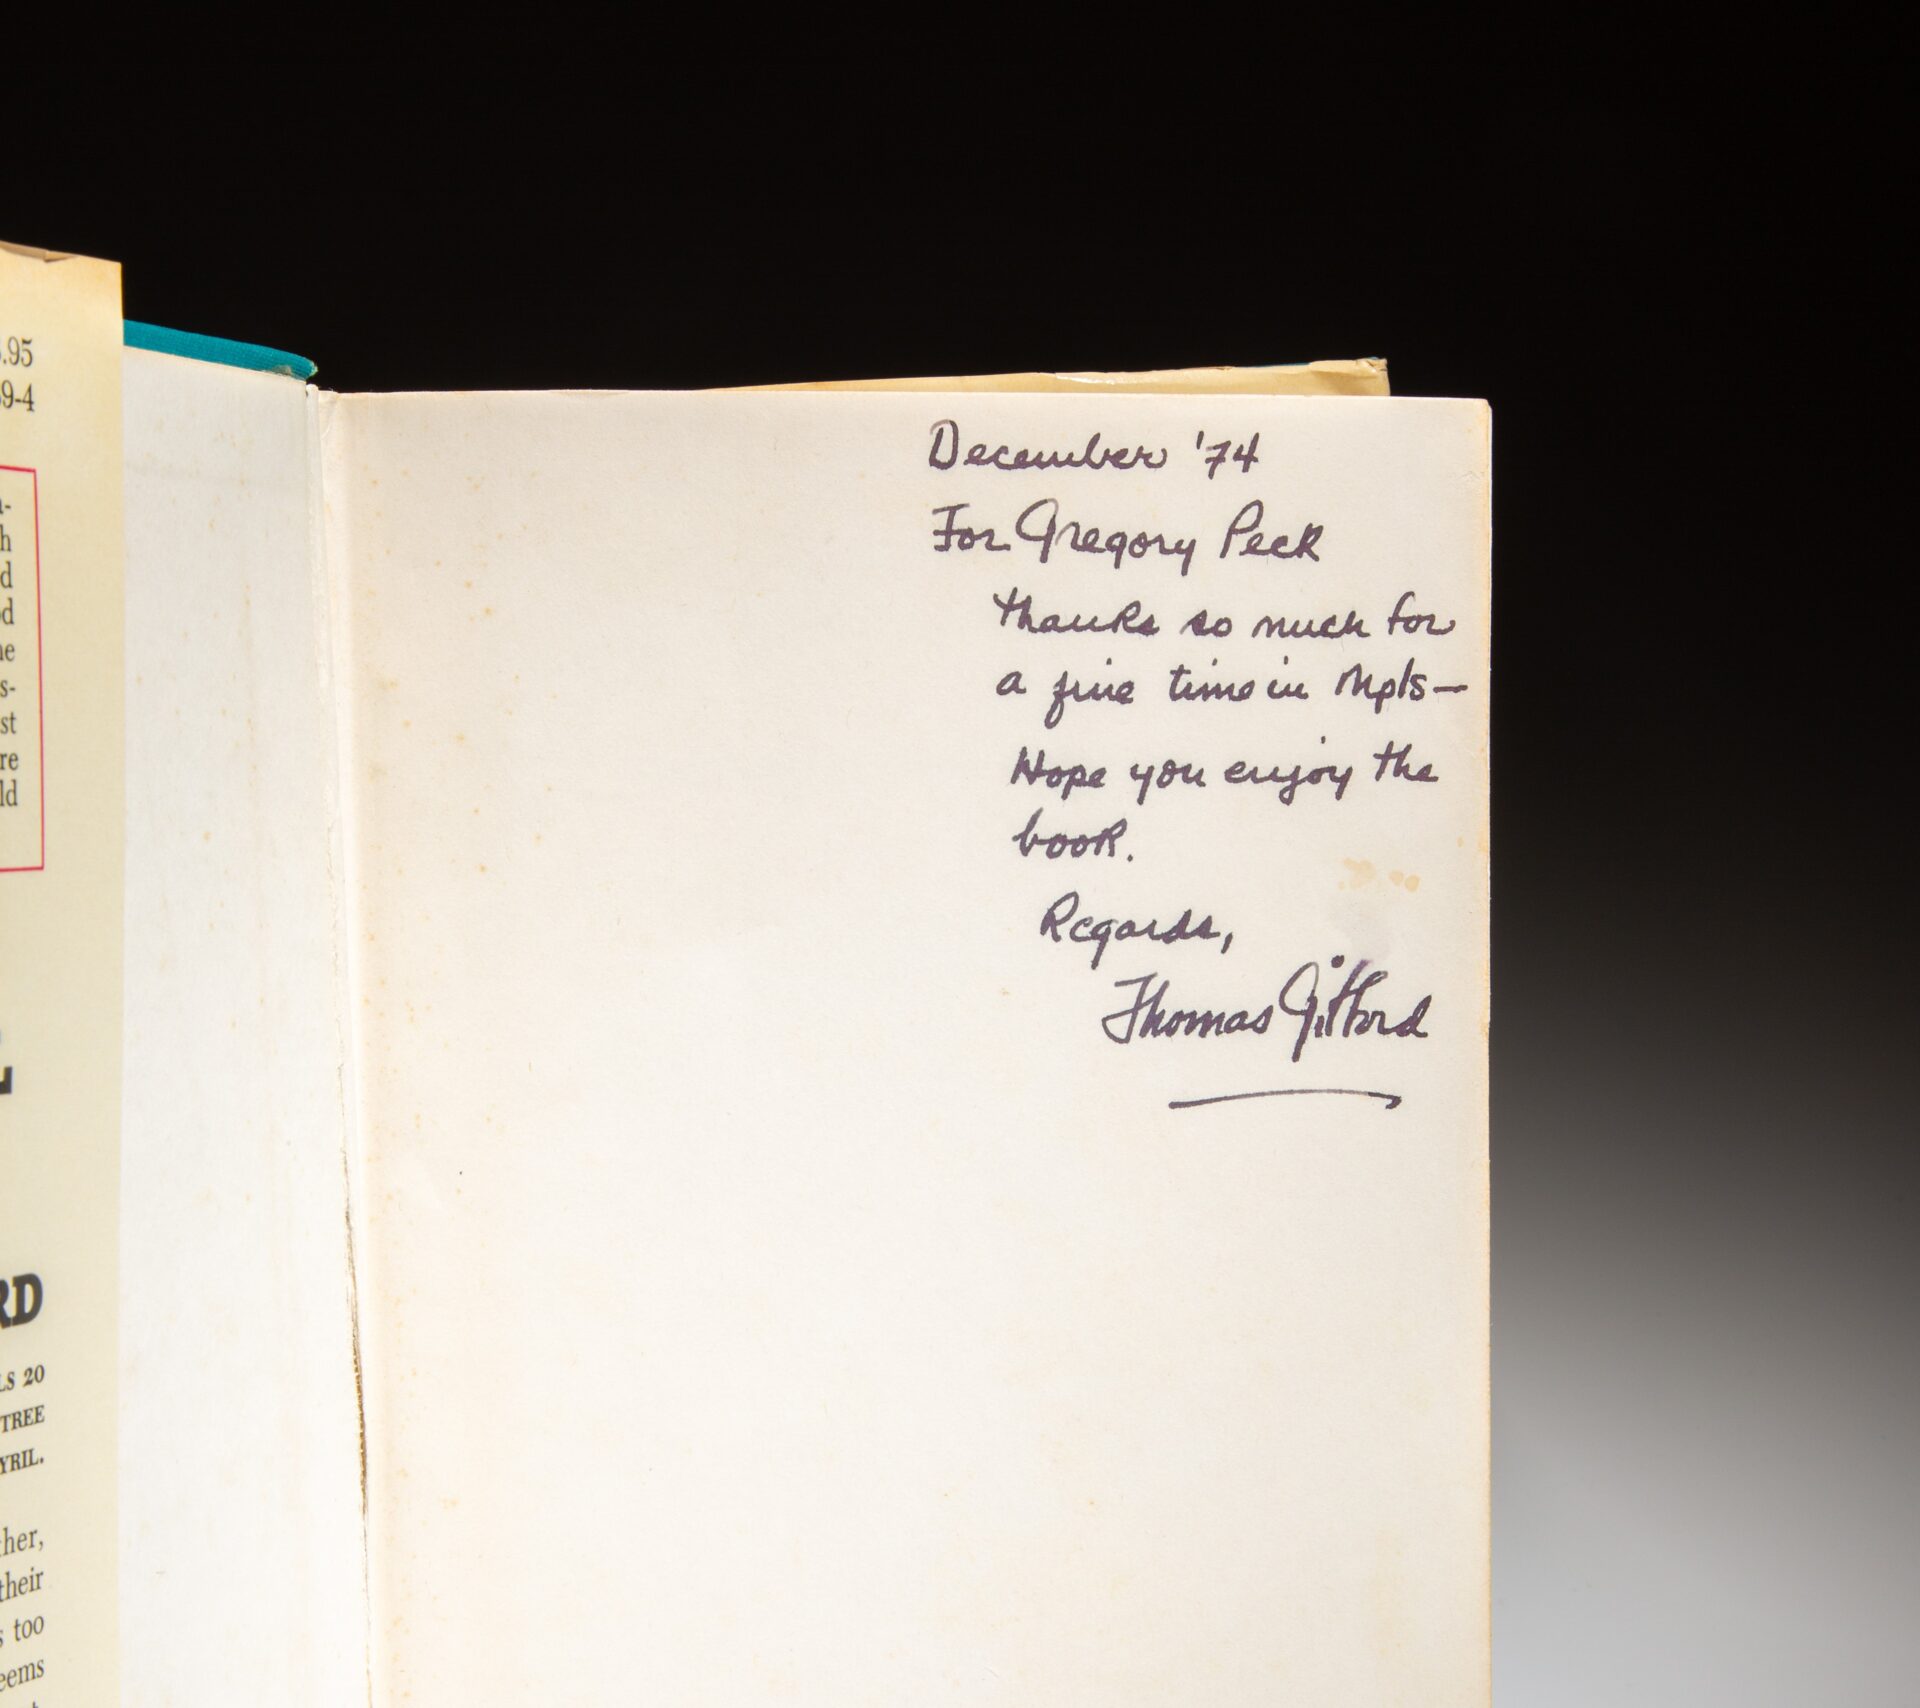 .95
9-4
a-
h
d
od
he
s-
st
re
ld
RD
LS 20
TREE
YRIL.
ther,
their
s too
eems
December '74
For Gregory Peck
thanks so much for
a fine time in Mpls—
Hope you enjoy the
book.
Regards,
Thomas Gifford